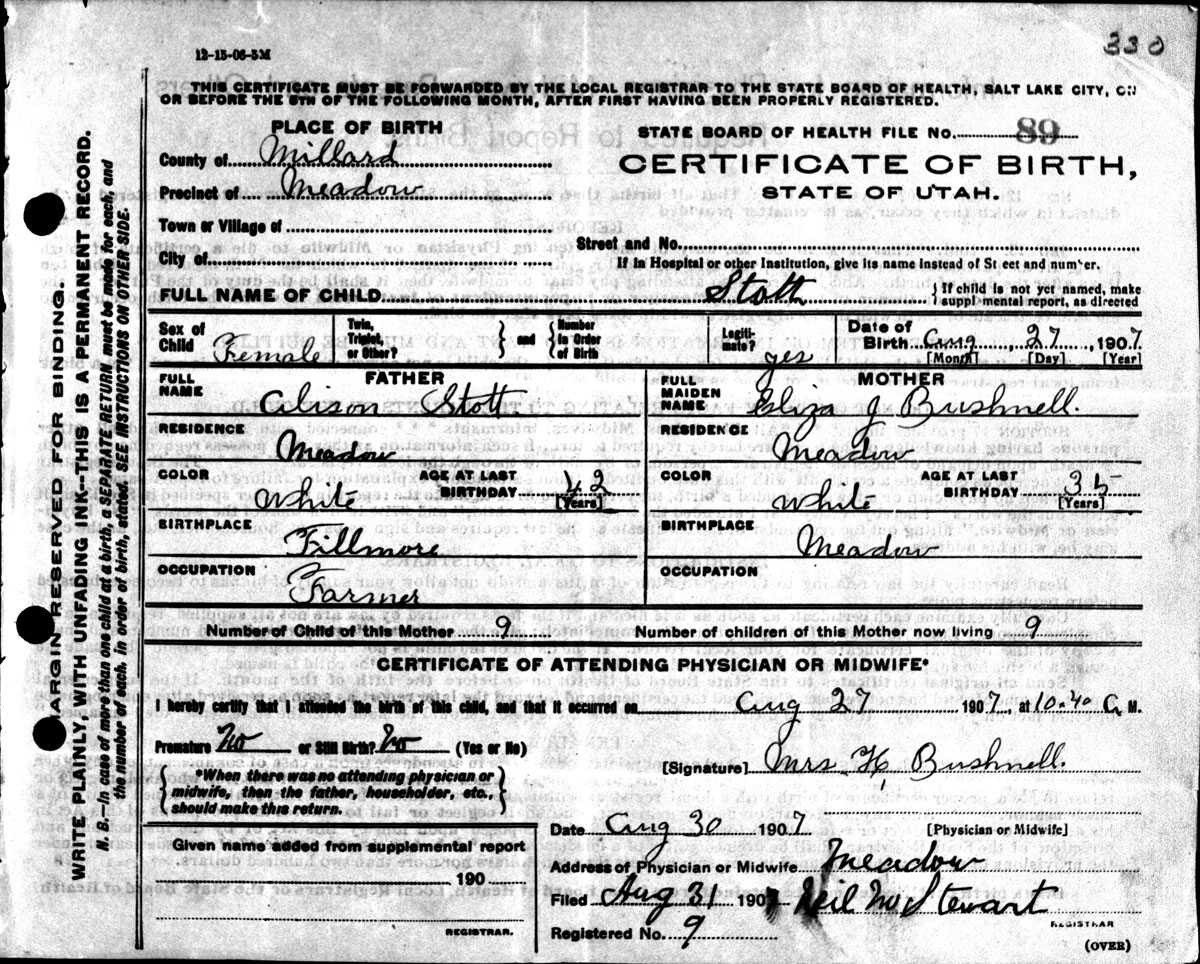 330
12-15-06-5M
THIS CERTIFICATE MUST BE FORWARDED BY THE LOCAL REGISTRAR TO THE STATE BOARD OF HEALTH, SALT LAKE CITY, ON
OR BEFORE THE 5TH OF THE FOLLOWING MONTH, AFTER FIRST HAVING BEEN PROPERLY REGISTERED.
PLACE OF BIRTH
County of Millard
Precinct of Meadow
Town or Village of
City of
STATE BOARD OF HEALTH FILE NO. 89
CERTIFICATE OF BIRTH,
STATE OF UTAH.
Street and No.
If in Hospital or other Institution, give its name instead of St eet and number.
FULL NAME OF CHILD. Stott { If child is not yet named, make
suppl mental report, as directed
Sex of Child Female
Twin, Triplet, or Other? } and { Number in Order of Birth
Legiti-mate? yes
Date of Birth Aug 27, 1907
[Month] [Day] [Year]
FATHER
FULL NAME Alison Stott
RESIDENCE
Meadow
COLOR White AGE AT LAST BIRTHDAY 42 [Years]
BIRTHPLACE
Fillmore
OCCUPATION
Farmer
MOTHER
FULL MAIDEN NAME Eliza J Bushnell.
RESIDENCE
Meadow
COLOR White AGE AT LAST BIRTHDAY 35 [Years]
BIRTHPLACE
Meadow
OCCUPATION
Number of Child of this Mother 9 Number of children of this Mother now living 9
CERTIFICATE OF ATTENDING PHYSICIAN OR MIDWIFE*
I hereby certify that I attended the birth of this child, and that it occurred on Aug 27 1907, at 10.40 A M.
Premature No or Still Birth? No (Yes or No)
{ *When there was no attending physician or
midwife, then the father, householder, etc.,
should make this return. }
[Signature] Mrs. H, Bushnell.
Date Aug 30 1907 [Physician or Midwife]
Address of Physician or Midwife Meadow
Filed Aug 31 1907 Neil M Stewart
REGISTRAR
Registered No. 9
(OVER)
Given name added from supplemental report
190
REGISTRAR.
MARGIN RESERVED FOR BINDING.
WRITE PLAINLY WITH UNFADING INK--THIS IS A PERMANENT RECORD.
N. B.--In case of more than one child at a birth, a SEPARATE RETURN must be made for each, and
the number of each, in order of birth, stated. SEE INSTRUCTIONS ON OTHER SIDE.